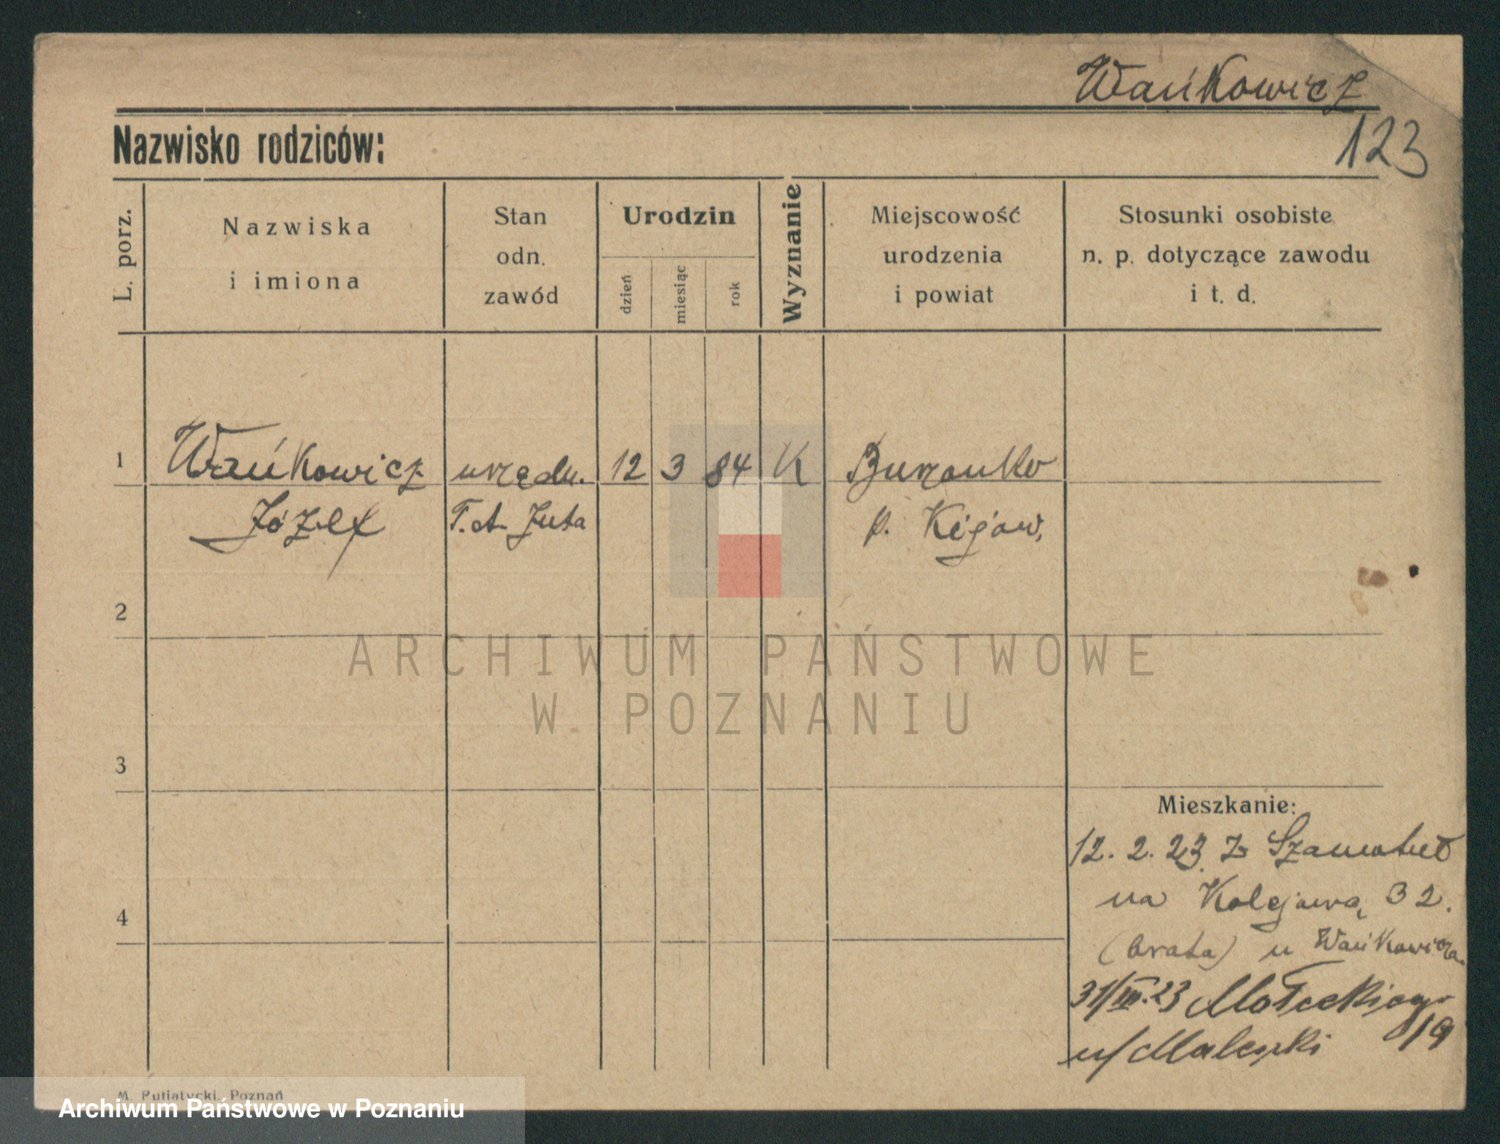 Wańkowicz
123
Nazwisko rodziców:
L. porz.
Nazwiska
i imiona
Stan
odn.
zawód
Urodzin
dzień
miesiąc
rok
Wyznanie
Miejscowość
urodzenia
i powiat
Stosunki osobiste
n. p. dotyczące zawodu
i t. d.
1 Wańkowicz urzędn. 12 3 84 K
Józef T. A. Juta p. Kijow.
2
3
4
Mieszkanie:
12. 2. 23 z Szamotuł
na Kolejową 32.
(brata) u Wańkowicza
31/III.23 Małeckiego
19
u/
M. Putiatycki, Poznań
ARCHIWUM PAŃSTWOWE
W POZNANIU
Archiwum Państwowe w Poznaniu